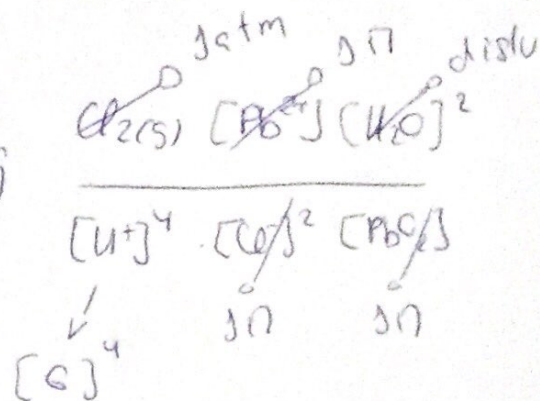 1atm 1M dislu
Cl2(g) [Pb2+] [H2O]2
[H+]4 . [Cl-]2 [PbO2]
1M 1M
[6]4